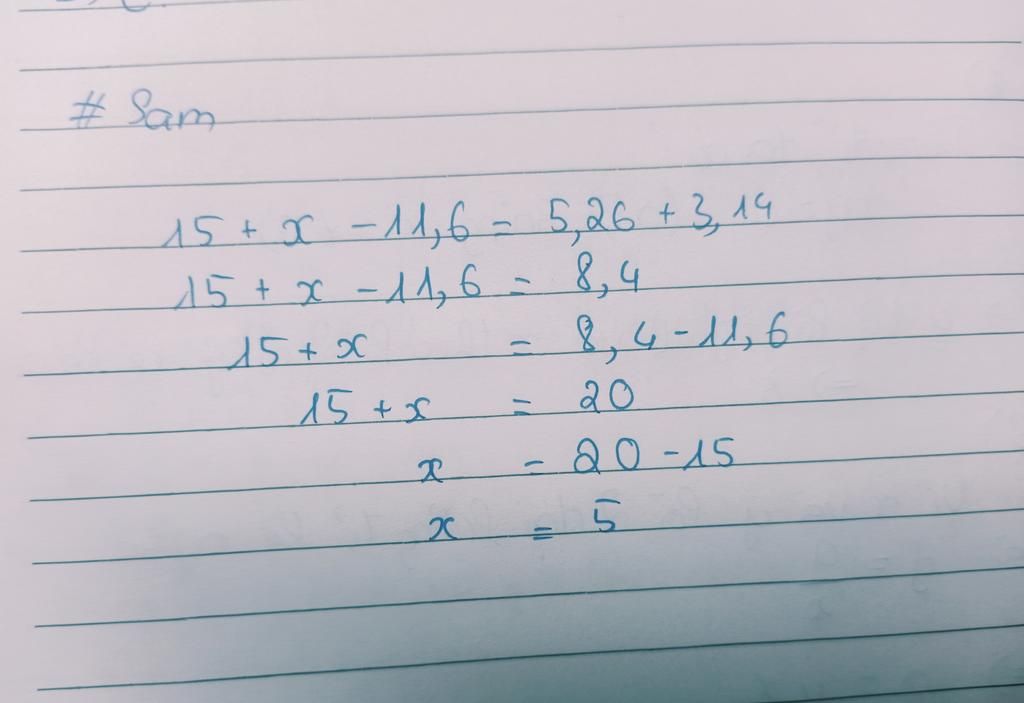 # Sam
15 + x - 11,6 = 5,26 + 3,14
15 + x - 11,6 = 8,4
15 + x = 8,4 - 11,6
15 + x = 20
x = 20 - 15
x = 5